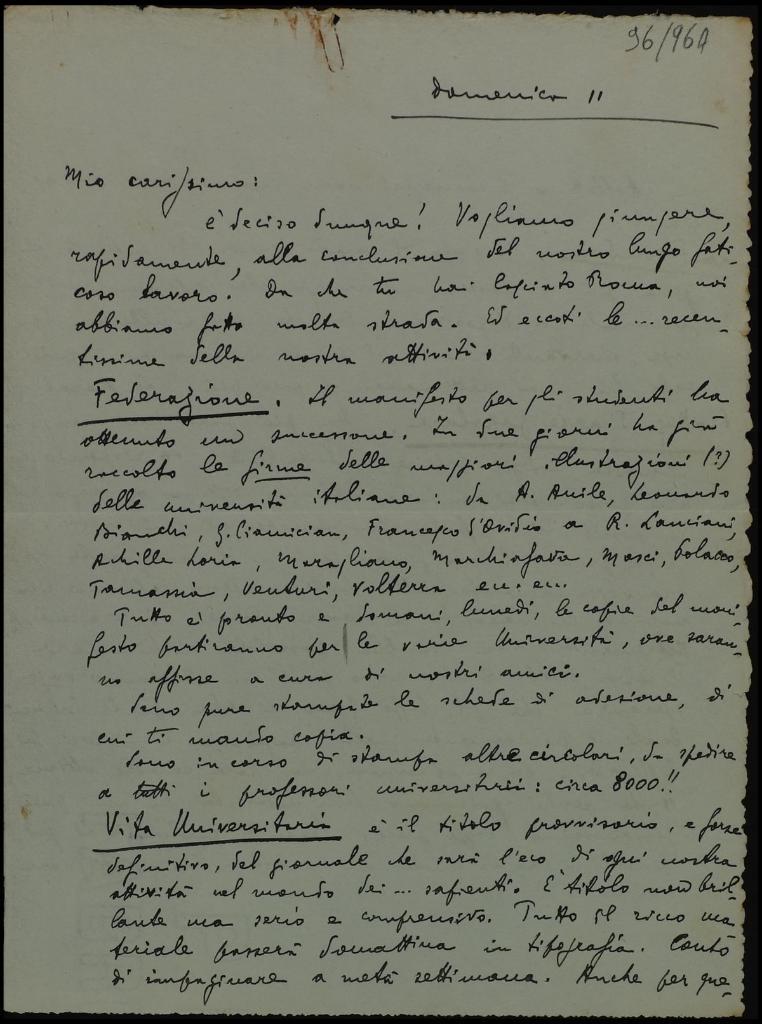 96/96A
Domenica 11
Mio carissimo:
è deciso dunque! Vogliamo giungere,
rapidamente, alla conclusione del nostro lungo fati-
coso lavoro. Da che tu hai lasciato Roma, noi
abbiamo fatto molta strada. Ed eccoti le ... recen-
tissime della nostra attività.
Federazione. Il manifesto per gli studenti ha
ottenuto un successone. In due giorni ha già
raccolto le firme delle maggiori illustrazioni (?)
delle università italiane: da A. Anile, Leonardo
Bianchi, G. Ciamician, Francesco d'Ovidio a R. Lanciani,
Achille Loria, Maragliano, Marchiafava, Mosci, Polacco,
Tamassia, Venturi, Volterra ecc. ecc.
Tutto è pronto e domani, lunedì, le copie del mani-
festo partiranno per le varie Università, ove saran-
no affisse a cura di nostri amici.
Sono pure stampate le schede di adesione, di
cui ti mando copia.
Sono in corso di stampa altre circolari, da spedire
a tutti i professori universitarii: circa 8000!!
Vita Universitaria è il titolo provvisorio, e forse
definitivo, del giornale che sarà l'eco di ogni nostra
attività nel mondo dei ... sapienti. È titolo non bril-
lante ma serio e comprensivo. Tutto il ricco ma-
teriale passerà domattina in tipografia. Conto
di impaginare a metà settimana. Anche per que-